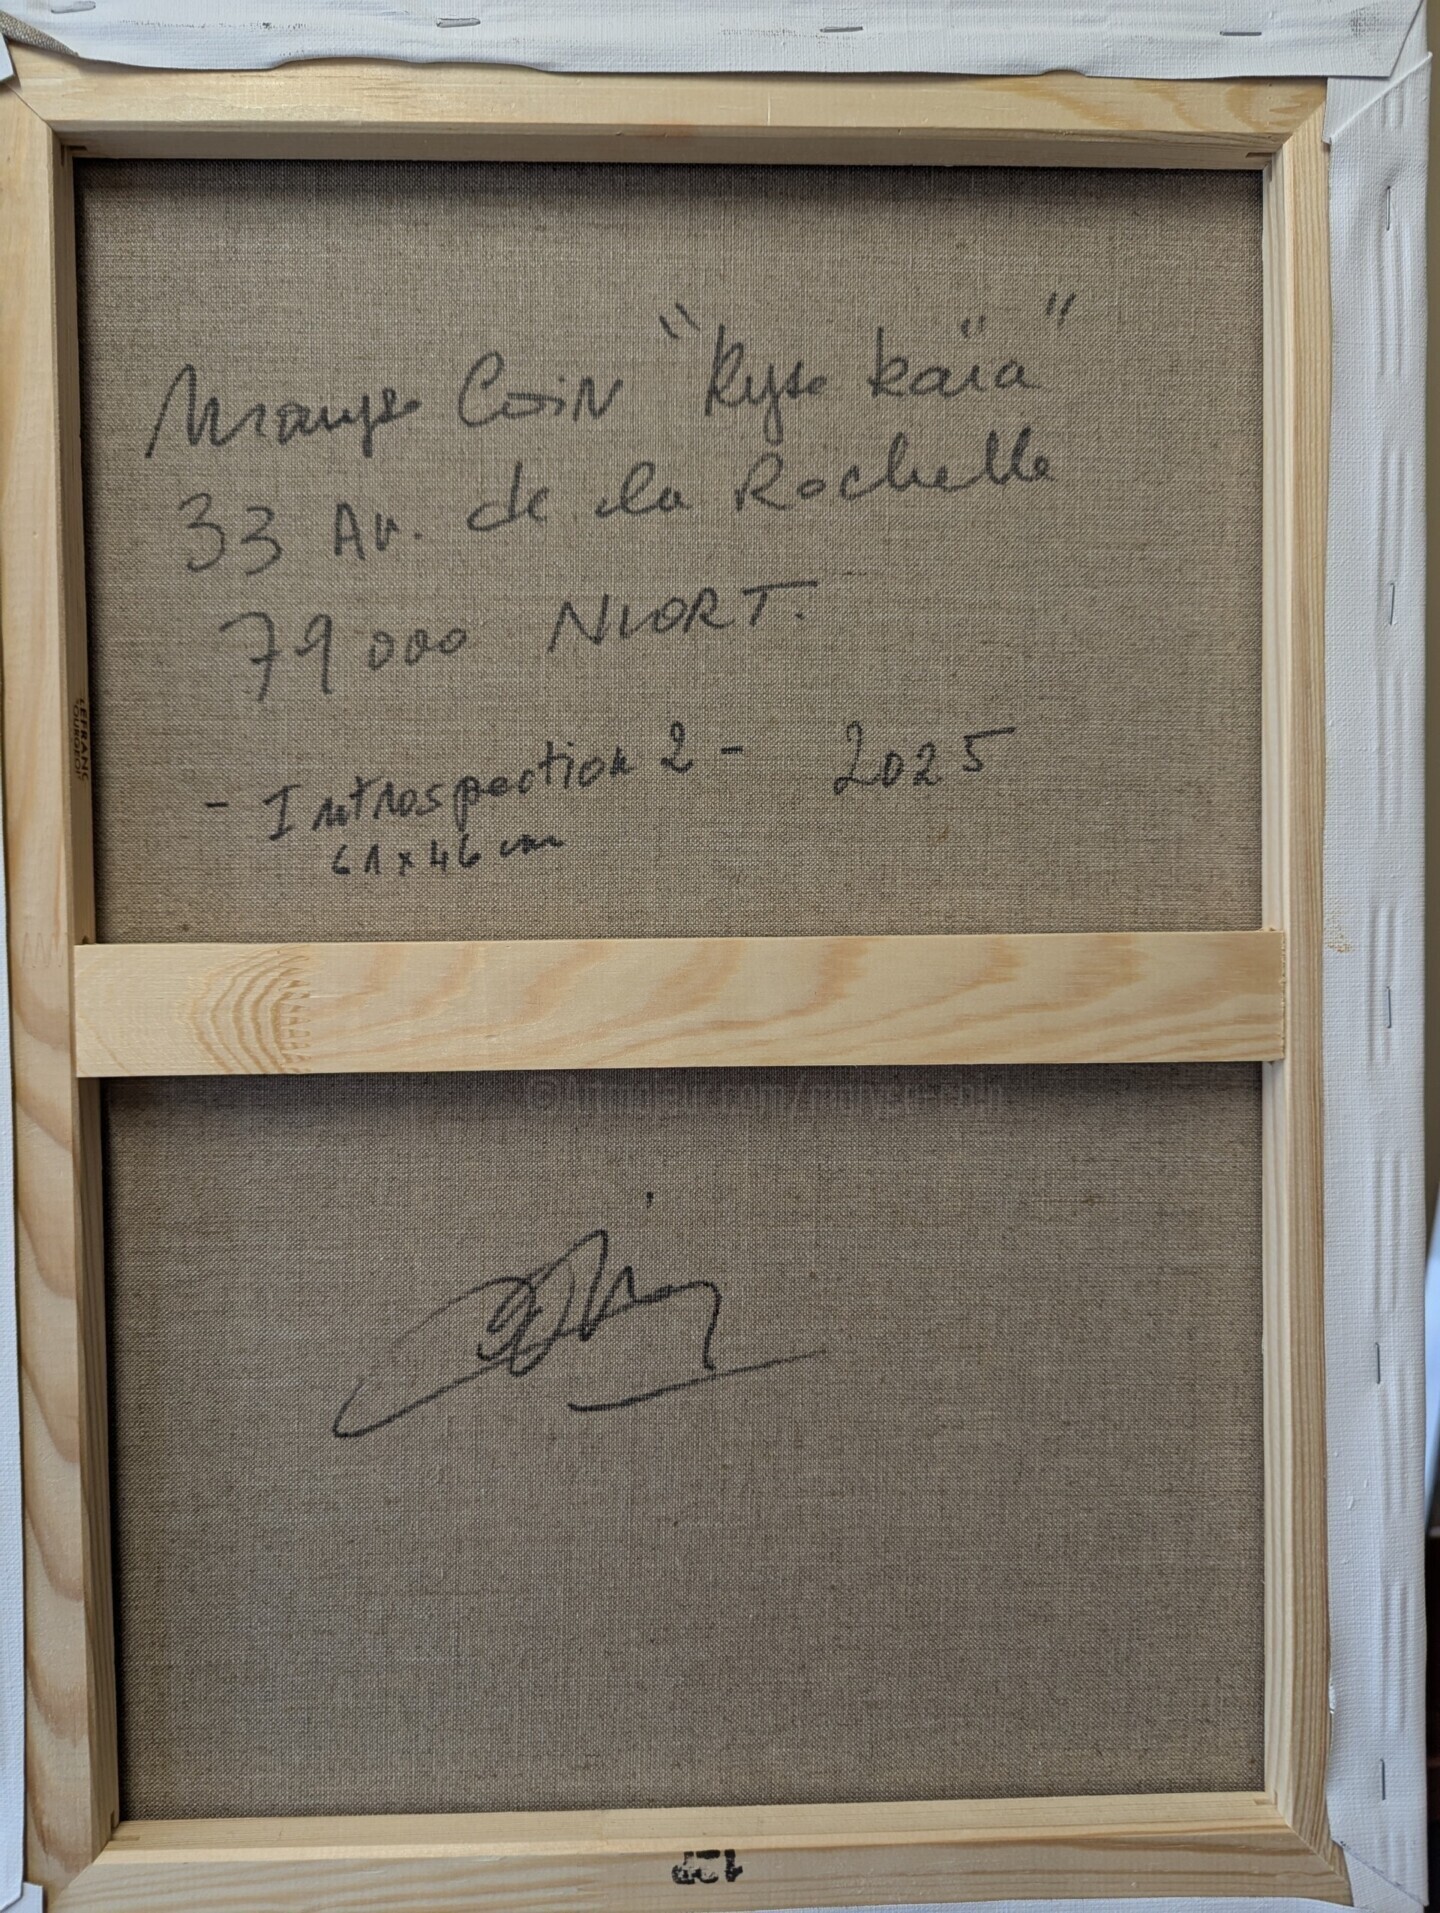 Maryse Coin "Ryse kaïa"
33 Av. de la Rochelle
79000 NIORT.
- Introspection 2 - 2025
61 x 46 cm
LEFRANC
BOURGEOIS
12P